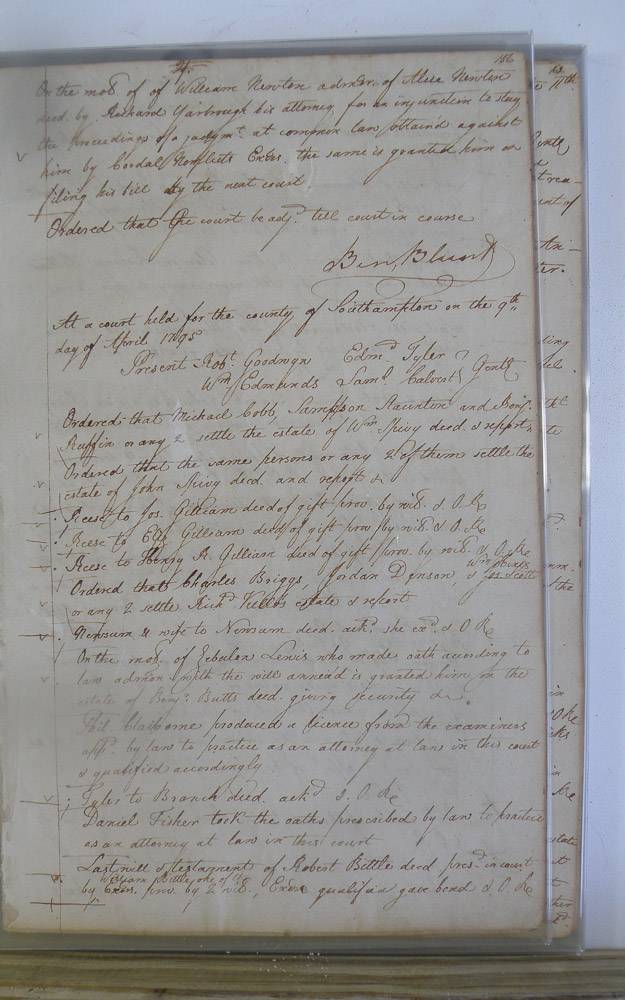 156
On the moo. of of William Newton admor. of Alice Newton
decd. by Richard Yarbrough his attorney for an injunction to stay
the proceedings of a judgmt. at common law obtain'd against
him by Exors. the same is granted him on
filing his bill by the next court
Ordered that the court be adjd. till court in course
Ben, Blunt
At a court held for the county of Southampton on the 9th
day of April 1795
Present Robt. Goodwyn Edmd. Tyler
Wm. Edmunds Saml. Calvert Gentn
Ordered that Michael Cobb, Sampson Staunton and Benj.
Ruffin or any 2 settle the estate of Wm. Spivy decd. & report
Ordered that the same persons or any 2 of them settle the
estate of John Spivy decd. and report &
Reese to Jos. Gilliam deed of gift prov. by wits. & O Re
Reese to Eliz. Gilliam deed of gift prov. by wits. & O. Re
Reese to Henry A. Gilliam deed of gift prov. by wits. & O. Re
Ordered that Charles Briggs, Jordan Denson, & Jos. Scott
or any 2 settle Richd. Kello's estate & report
Newsum & wife to Newsum deed ackd. she exd. & O Re
On the moo. of Zebulon Lewis who made oath according to
law admon with the will annexd is granted him on the
estate of Benj. Butts decd. giving security &c.
Phil. Claiborne produced a licence from the examiners
appd. by law to practice as an attorney at law in this court
& qualified accordingly
Tyler to Branch deed ackd. & O. Re
Daniel Fisher took the oaths prescribed by law to practice
as an attorney at law in this court
Last will & testament of Robert Bittle decd. presd. in court
William Bittle one of the
by Exors. prov. by 2 wits., Exor qualified gave bond & O. Re